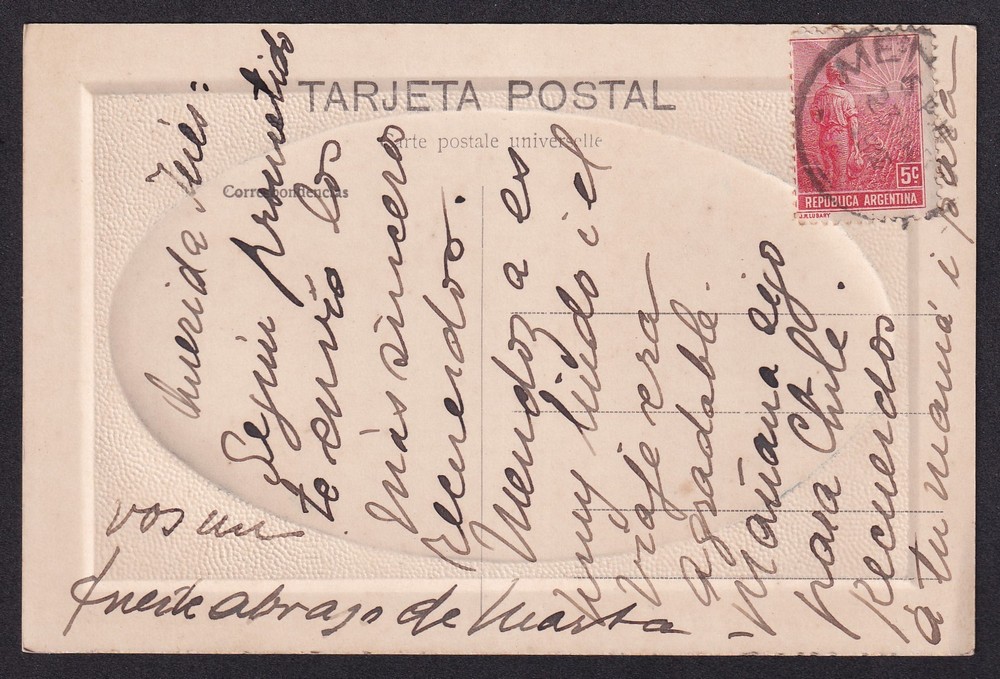 TARJETA POSTAL
Carte postale universelle
Correspondencias
MEN
5c
REPÚBLICA ARGENTINA
Querida Inés:
Segun prometido
te envio los
más sinceros
recuerdos.
Mendoza es
muy lindo i el
viaje era
agradable.
Mañana sijo
para Chile.
Recuerdos
a tu mamá i para
vos un
fuerte abrazo de Marta